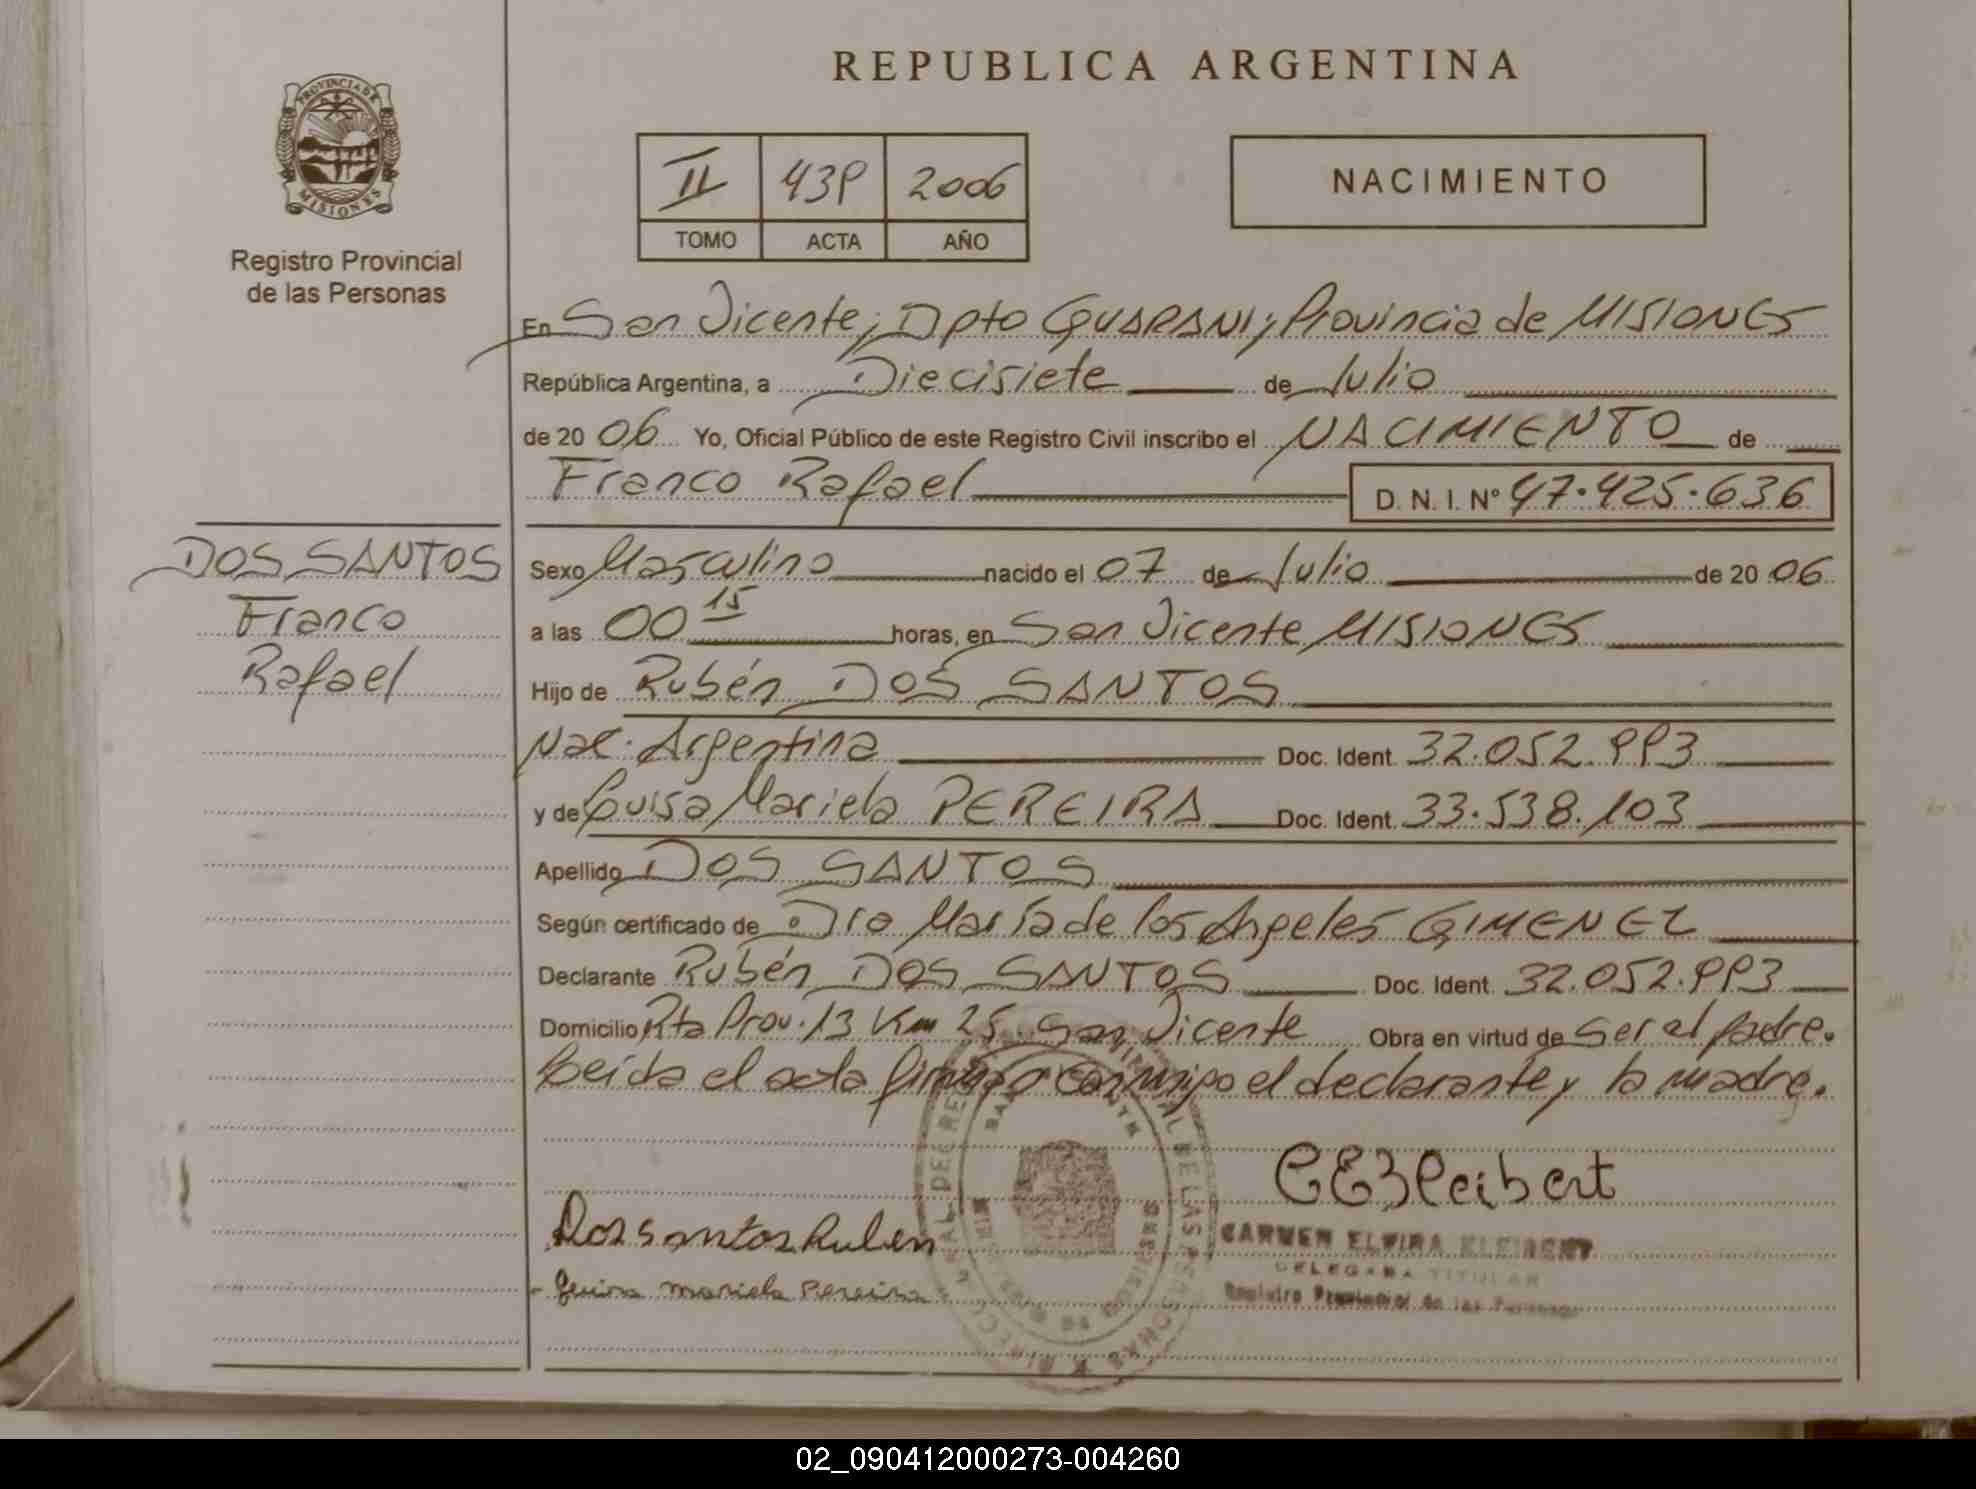 REPUBLICA ARGENTINA
PROVINCIA DE
MISIONES
Registro Provincial
de las Personas
II 439 2006
TOMO ACTA AÑO
NACIMIENTO
En San Vicente; Dpto GUARANI; Provincia de MISIONES
República Argentina, a Diecisiete de Julio
de 20 06 Yo, Oficial Público de este Registro Civil inscribo el NACIMIENTO de
Franco Rafael D. N. I. Nº 47.425.636
DOS SANTOS
Franco
Rafael
Sexo Masculino nacido el 07 de Julio de 20 06
a las 00 15 horas, en San Vicente MISIONES
Hijo de Rubén DOS SANTOS
Nac. Argentina Doc. Ident. 32.052.993
y de Luisa Mariela PEREIRA Doc. Ident. 33.538.103
Apellido DOS SANTOS
Según certificado de Dra María de los Angeles GIMENEZ
Declarante Rubén DOS SANTOS Doc. Ident. 32.052.993
Domicilio Rta Prov. 13 Km 25. San Vicente Obra en virtud de ser el padre.
Leída el acta firman conmigo el declarante y la madre.
CEKleibert
Dos santos Ruben
CARMEN ELVIRA KLEIBERT
DELEGADA TITULAR
Luisa mariela Pereira
Registro Provincial de las Personas
02_090412000273-004260